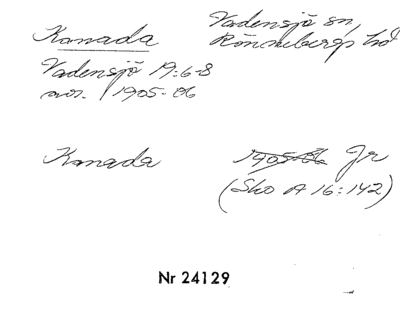 Kanada Vadensjö sn,
Rönnebergs hd
Vadensjö 19:6-8
avs. 1905-06
Kanada 1905-06 Jr
(Sko A 16:142)
Nr 24129